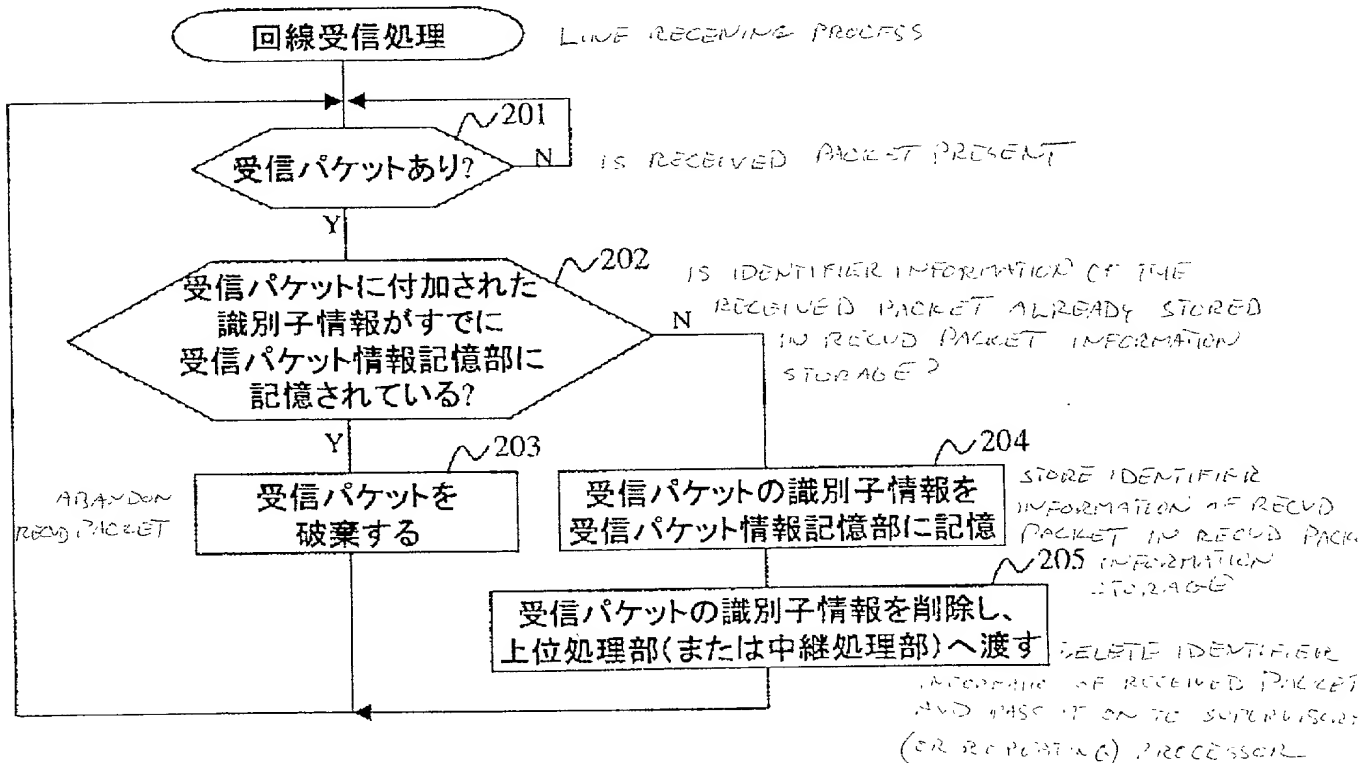 回線受信処理
LINE RECEIVING PROCESS
201
受信パケットあり?
N
IS RECEIVED PACKET PRESENT
Y
202
受信パケットに付加された
識別子情報がすでに
受信パケット情報記憶部に
記憶されている?
N
IS IDENTIFIER INFORMATION OF THE
RECEIVED PACKET ALREADY STORED
IN RECVD PACKET INFORMATION
STORAGE?
Y
203
受信パケットを
破棄する
ABANDON
RECVD PACKET
204
受信パケットの識別子情報を
受信パケット情報記憶部に記憶
STORE IDENTIFIER
INFORMATION OF RECVD
PACKET IN RECVD PACK
INFORMATION
STORAGE
205
受信パケットの識別子情報を削除し、
上位処理部(または中継処理部)へ渡す
DELETE IDENTIFIER
OF RECEIVED PACKET
AND PASS IT ON TO
(OR REPEATING) PROCESSOR